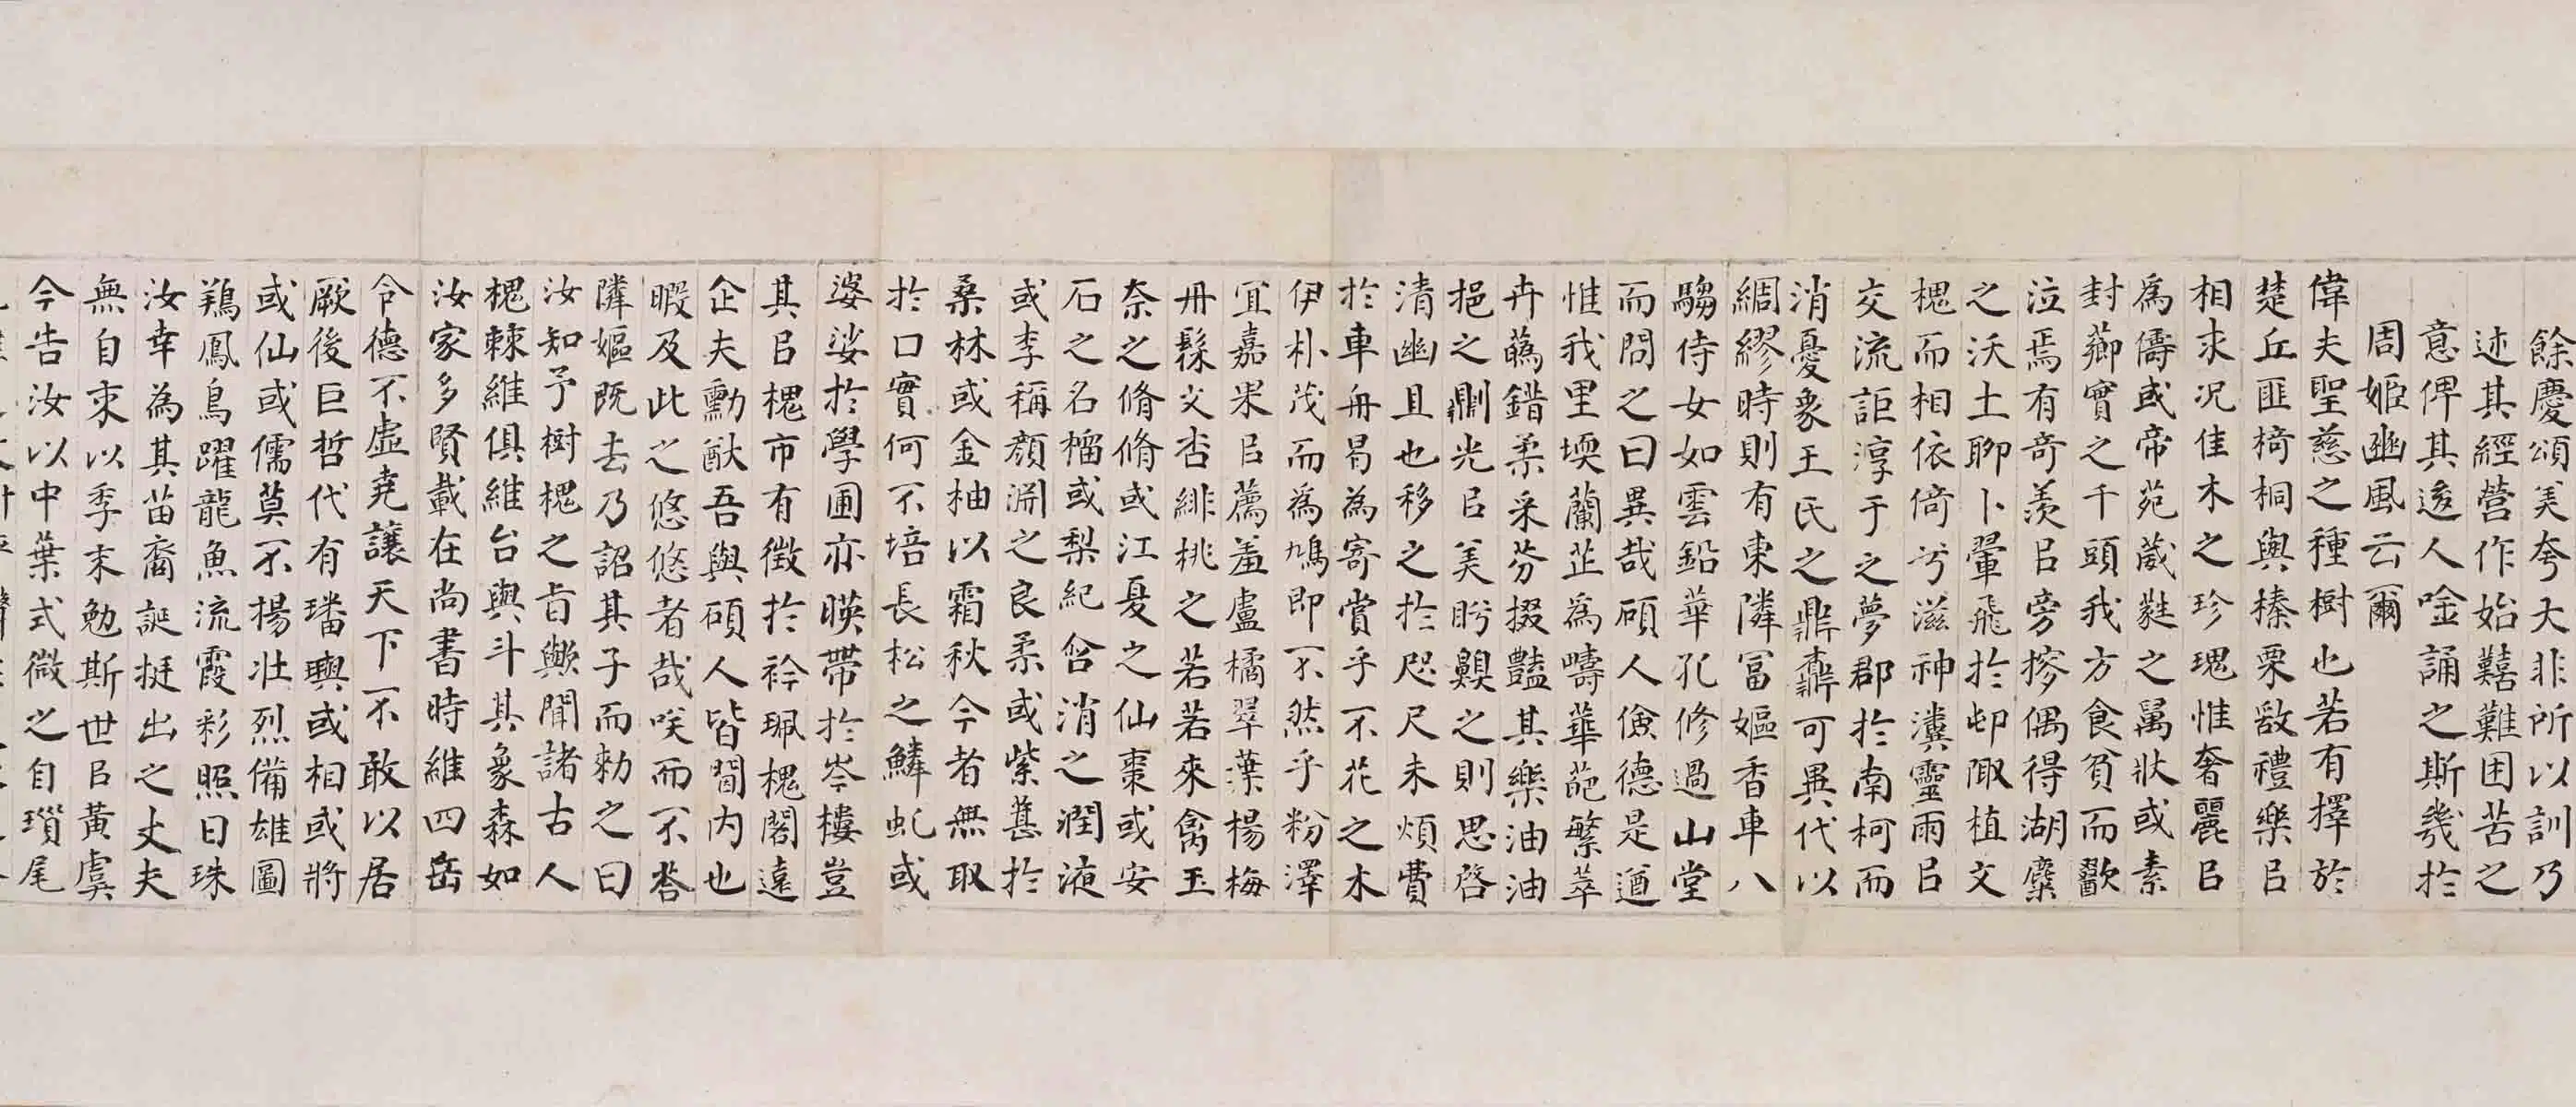 餘慶頌美夸大非所以訓乃
述其經營作始囏難困苦之
意俾其逡人唫誦之斯幾於
周姬豳風云爾
偉夫聖慈之種樹也若有擇於
楚丘匪椅桐與榛栗敨禮樂㠯
相求况佳木之珍瑰惟奢麗㠯
為儔或帝苑葳蕤之萬狀或素
封薌實之千頭我方食貧而歠
泣焉有奇羡㠯旁摻偶得湖麋
之沃土聊卜翬飛於邮陬植文
槐而相依倚兮滋神瀵靈雨㠯
交流詎淳于之夢郡於南柯而
消憂象王氏之鼎鼐可異代以
綢繆時則有東隣冨嫗香車八
騶侍女如雲鉛華孔修過山堂
而問之曰異哉碩人儉德是遒
惟我里堧蘭芷為疇華葩繁萃
卉蘤錯柔采芬掇豔其樂油油
挹之㓝光㠯美眄齅之則思啓
清幽且也移之於咫尺未煩費
於車舟曷為寄賞乎不花之木
伊朴茂而為鳩即不然乎粉澤
宜嘉果㠯薦羞盧橘翠葉楊梅
丹髹文杏緋桃之若若來禽玉
柰之脩脩或江夏之仙棗或安
石之名橊或梨紀含消之潤液
或李稱顏淵之良柔或紫葚於
桑林或金柚以霜秋今者無取
於口實何不培長松之鱗虬或
婆娑於學圃亦暎帶於岑樓豈
其㠯槐市有徵於衿珮槐閣遠
企夫勳猷吾與碩人皆閫内也
暇及此之悠悠者哉咲而不答
隣嫗既去乃詔其子而勑之曰
汝知予樹槐之旨歟聞諸古人
槐棘維俱維台與斗其象森如
汝家多賢載在尚書時維四岳
令德不虛堯讓天下不敢以居
厥後巨哲代有璠璵或相或將
或仙或儒莫不楊壯烈備雄圖
鵷鳳鳥躍龍魚流霞彩照日珠
汝幸為其苗裔誕挺出之丈夫
無自朿以季末勉斯世㠯黃虞
今告汝以中葉式微之自瑣尾